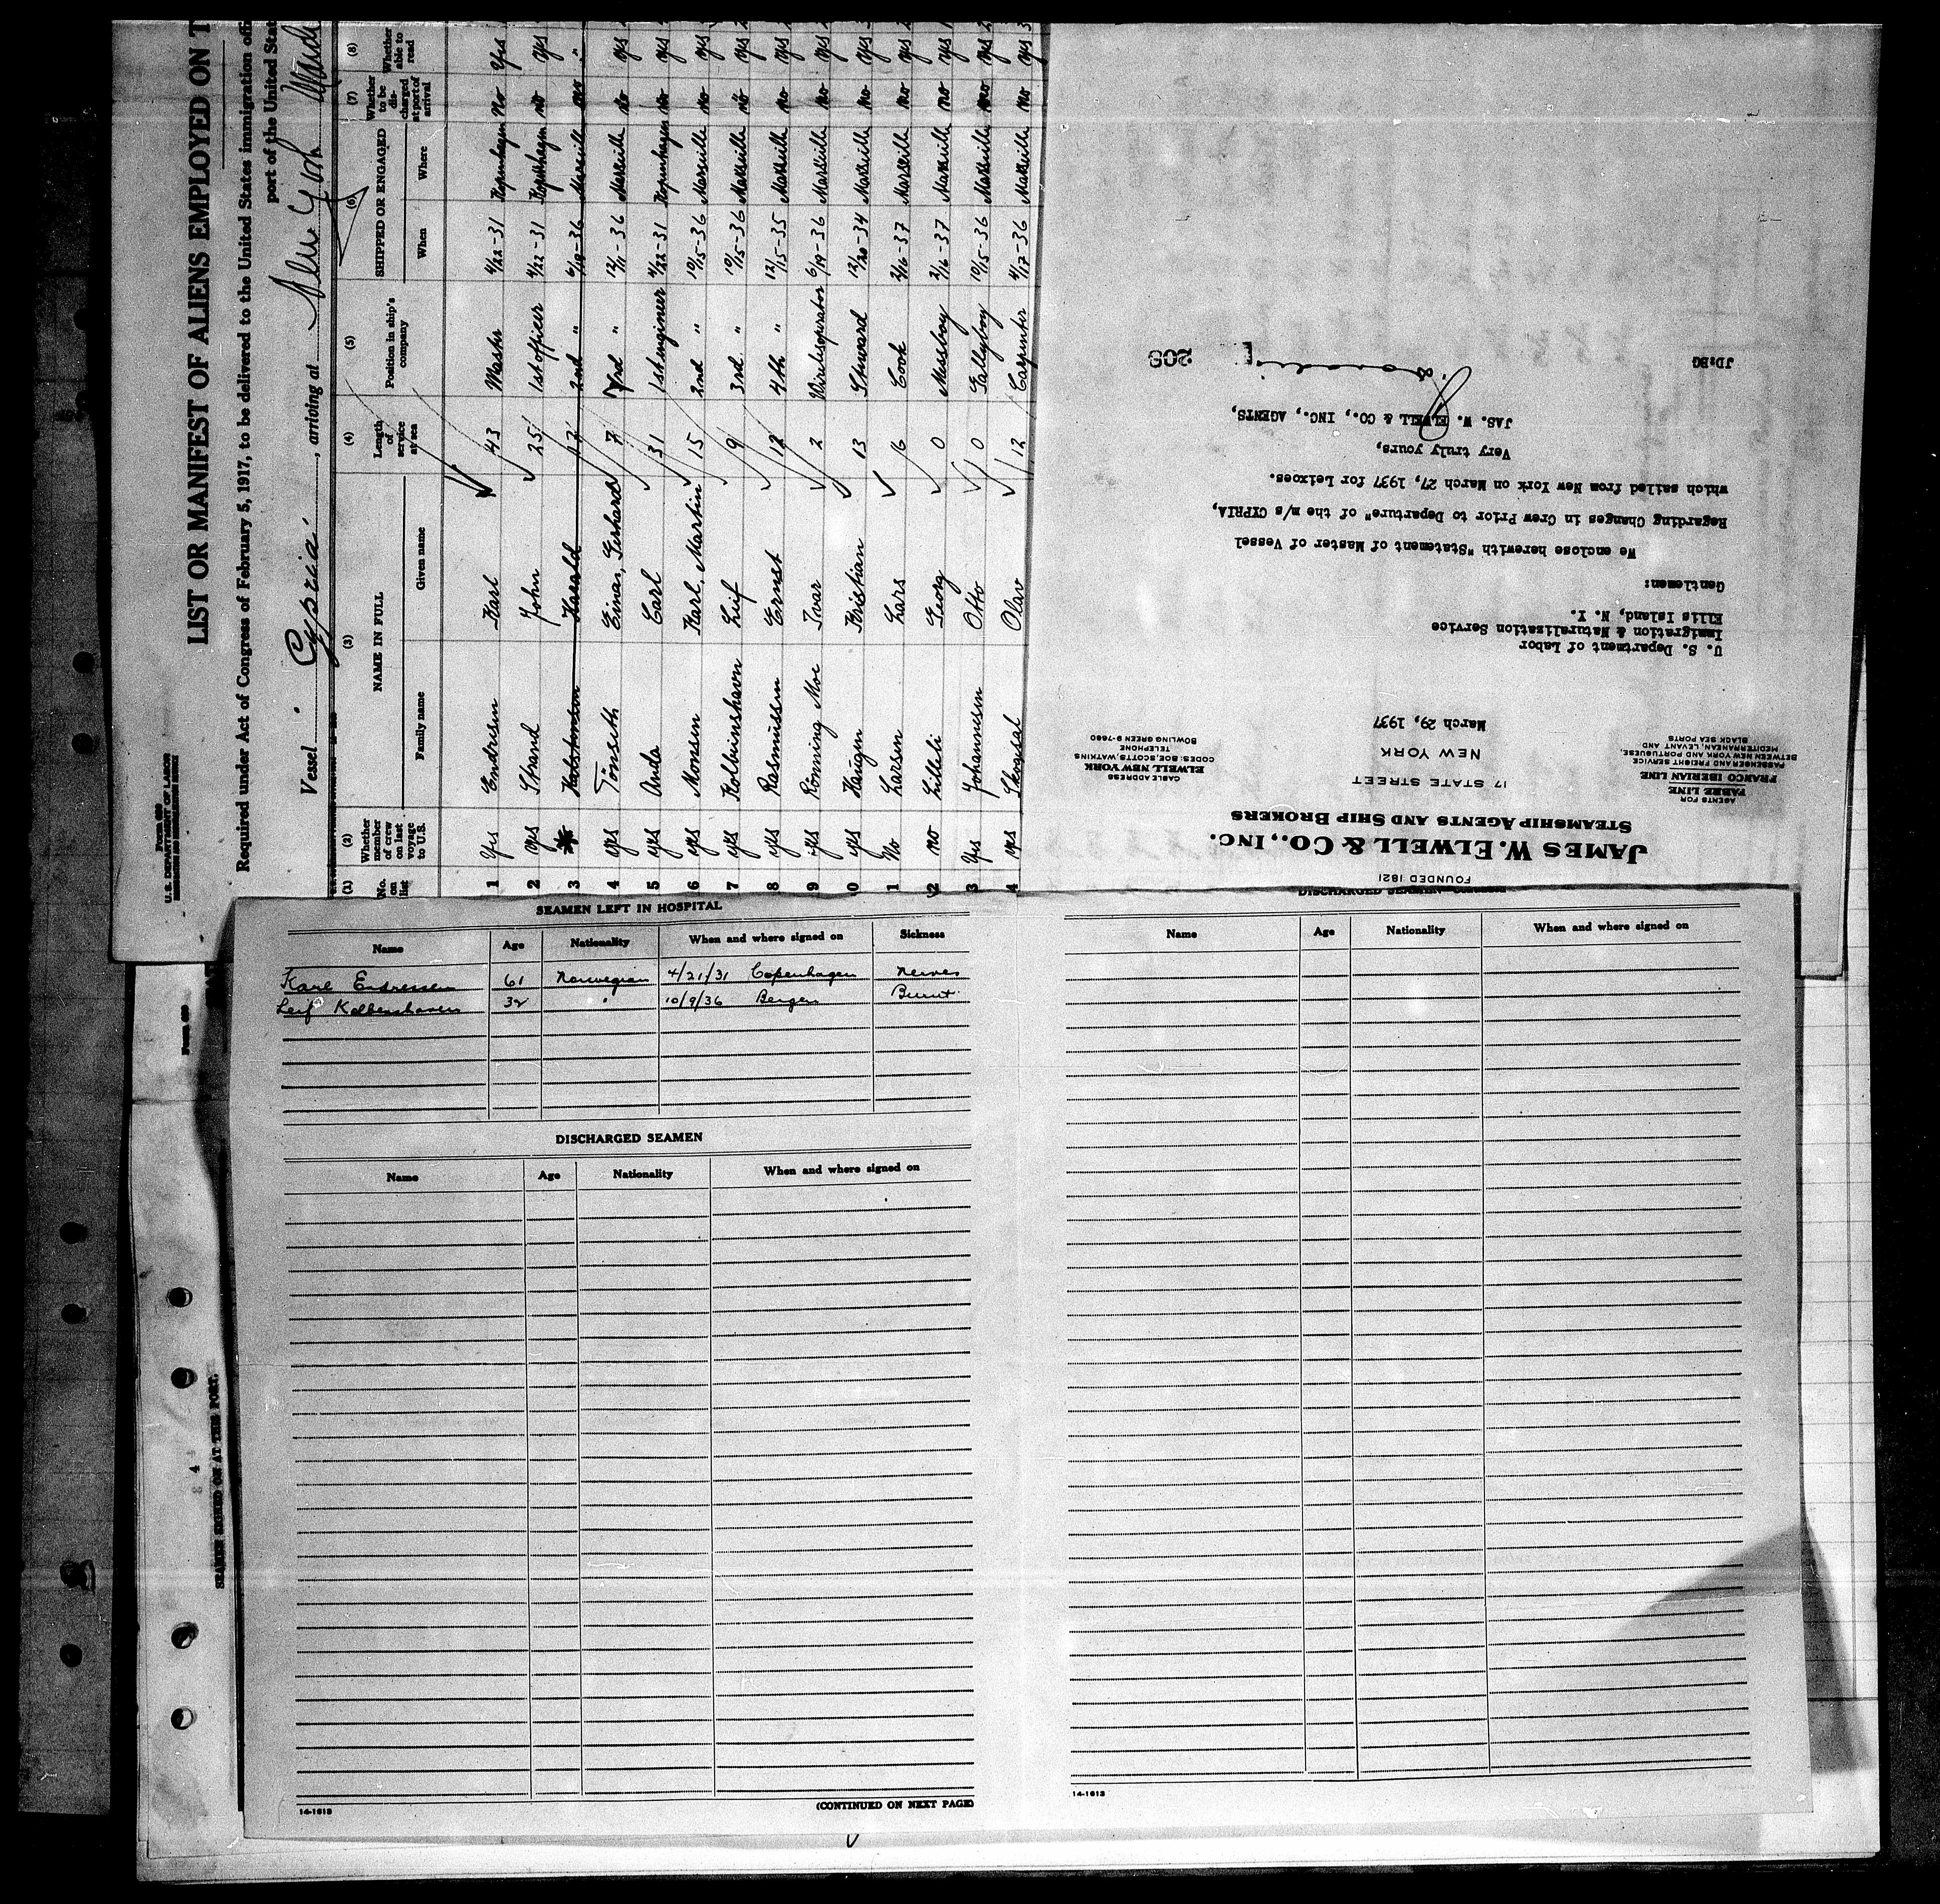 Form 689
U.S. DEPARTMENT OF LABOR
LIST OR MANIFEST OF ALIENS EMPLOYED ON T
Required under Act of Congress of February 5, 1917, to be delivered to the United States immigration offi
port of the United Stat
Vessel Cypria, arriving at New York March
(1) (2) (3) (4) (5) (6) (7) (8)
No. on list
Whether member of crew on last voyage to U.S.
NAME IN FULL
Family name Given name
Length of service at sea
Position in ship's company
SHIPPED OR ENGAGED
When Where
Whether to be discharged at port of arrival
Whether able to read
1 Yes Endresen Karl 43 Master 4/22-31 Kopenhagen No Yes
2 yes Strand John 25 1st officer 4/22-31 Kopenhagen no yes
3 Harald 2nd " 6/19-36 Marseille no "
4 yes Tönseth Einar, Gerhard 7 3rd " 12/11-36 Marseille no yes
5 yes Anda Carl 31 1st engineer 4/22-31 Kopenhagen no yes
6 yes Monsen Karl, Martin 15 2nd " 10/15-36 Marseille no yes
7 yes Kolbeinshavn Leif 9 3rd " 10/15-36 Marseille no yes
8 yes Rasmussen Ernst 12 4th " 12/15-35 Marseille no yes
9 yes Rönning Moe Ivar 2 Wirelesoperator 6/19-36 Marseille no yes
0 yes Haugen Kristian 13 Steward 12/20-34 Marseille no yes
1 No Larsen Lars 6 Cook 2/16-37 Marseille no yes
2 no Lilleli Georg 0 Messboy 2/16-37 Marseille no yes
3 Yes Johannesen Otto 0 Galleyboy 10/15-36 Marseille no yes
4 yes Olav 12 Carpenter 4/17-36 Marseille no yes
FOUNDED 1821
JAMES W. ELWELL & CO., INC.
STEAMSHIP AGENTS AND SHIP BROKERS
17 STATE STREET
NEW YORK
AGENTS FOR
FABRE LINE
FRANCO IBERIAN LINE
PASSENGER AND FREIGHT SERVICE
BETWEEN NEW YORK AND PORTUGUESE,
MEDITERRANEAN, LEVANT AND
BLACK SEA PORTS
CABLE ADDRESS
ELWELL NEW YORK
CODES: BOE, SCOTTS, WATKINS
TELEPHONE
BOWLING GREEN 9-7680
March 29, 1937
U. S. Department of Labor
Immigration & Naturalization Service
Ellis Island, N. Y.
Gentlemen:
We enclose herewith "Statement of Master of Vessel
Regarding Changes in Crew Prior to Departure" of the m/s CYPRIA,
which sailed from New York on March 27, 1937 for Leixoes.
Very truly yours,
JAS. W. ELWELL & CO., INC., AGENTS,
JD:BG
208
SEAMEN LEFT IN HOSPITAL
Name Age Nationality When and where signed on Sickness
Karl Endressen 61 Norwegian 4/21/31 Copenhagen Nerves
Leif Kolbenshaven 32 " 10/9/36 Bergen Burnt
DISCHARGED SEAMEN
Name Age Nationality When and where signed on
14-1613
(CONTINUED ON NEXT PAGE)
DISCHARGED SEAMEN
Name Age Nationality When and where signed on
14-1613
Form 689
SEAMEN SIGNED ON AT THIS PORT.